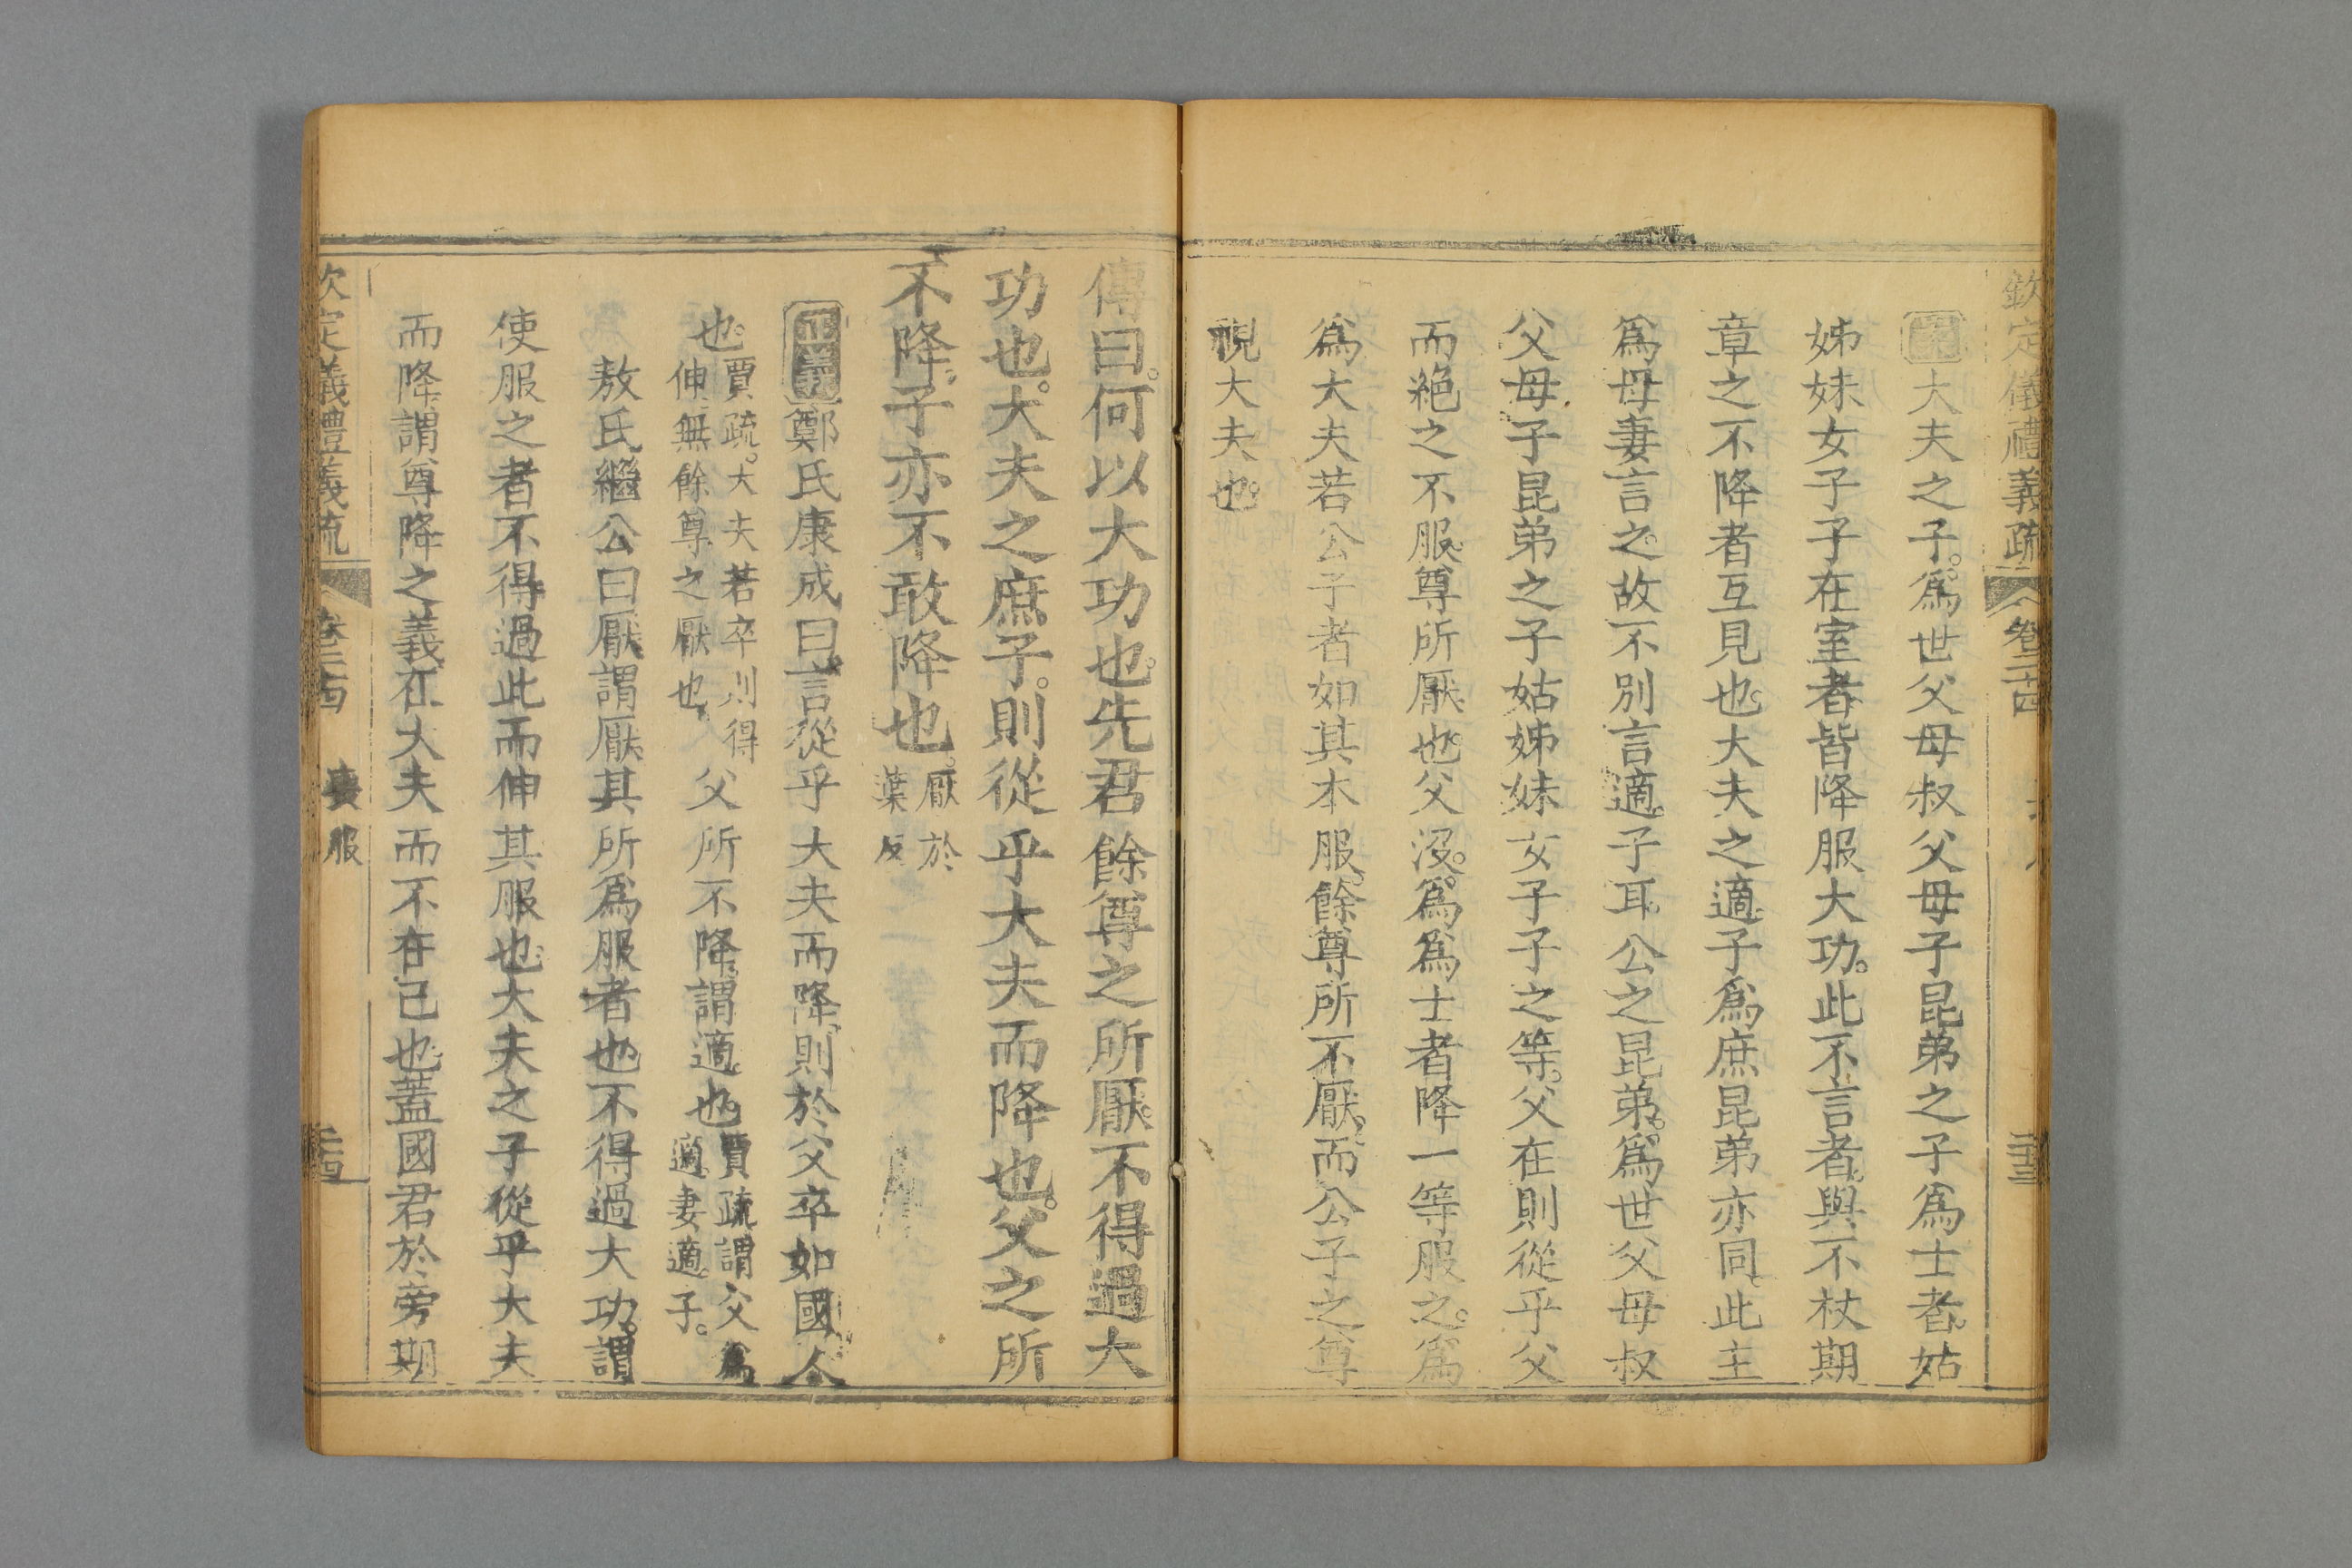 欽定儀禮義疏 卷二十四 二十三
大夫之子。爲世父母叔父母子昆弟之子爲士者。姑
姊妹女子子在室者皆降服大功。此不言者。與不杖期
章之不降者互見也。大夫之適子爲庶昆弟亦同。此主
爲母妻言之。故不別言適子耳。公之昆弟。爲世父母叔
父母子昆弟之子姑姊妹女子子之等。父在則從乎父
而絕之不服。尊所厭也。父沒。爲爲士者降一等服之。爲
爲大夫若公子者如其本服。餘尊所不厭。而公子之尊
視大夫也。
傳曰。何以大功也。先君餘尊之所厭。不得過大
功也。大夫之庶子。則從乎大夫而降也。父之所
不降。子亦不敢降也。厭於
葉反
正義鄭氏康成曰言從乎大夫而降。則於父卒如國人
也。賈疏。大夫若卒則得
伸。無餘尊之厭也。父所不降。謂適也。賈疏謂父爲
適妻適子。
敖氏繼公曰厭謂厭其所爲服者也不得過大功。謂
使服之者不得過此而伸其服也。大夫之子從乎大夫
而降。謂尊降之義在大夫而不在己也。蓋國君於旁期
欽定儀禮義疏 卷二十四 喪服 二十四